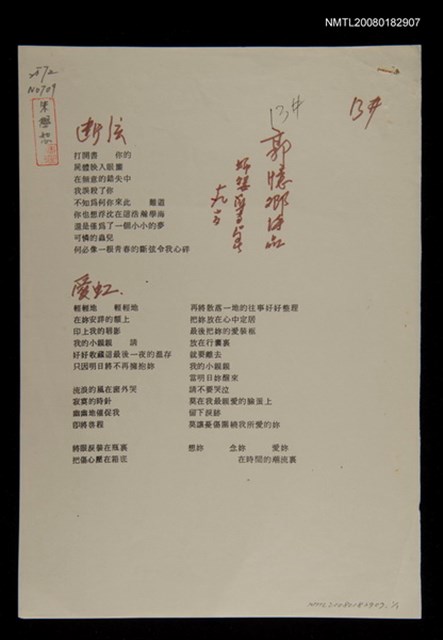 NMTL20080182907
郭憶卿作品
断弦
打開書 你的
屍體映入眼簾
在個意的錯失中
我誤殺了你
不知為何你來此 難道
你也想浮沈在這浩瀚學海
還是僅為了一個小小的夢
可憐的蟲兒
何必像一根青春的斷弦令我心碎
愛虹
輕輕地 輕輕地
在妳安詳的額上
印上我的唇影
我的小親親 請
好好收藏這最後一夜的溫存
只因明日將不再擁抱妳
流浪的風在窗外哭
寂寞的時針
幽幽地催促我
即將啓程
將眼淚裝在瓶裏
把傷心壓在箱底
再將散落一地的往事好好整理
把妳放在心中定居
最後把妳的愛裝框
放在行囊裏
就要離去
我的小親親
當明日妳醒來
請不要哭泣
莫在我最親愛的臉蛋上
留下淚跡
莫讓憂傷圍繞我所愛的妳
想妳 念妳 愛妳
在時間的潮流裏
NMTL20080182907